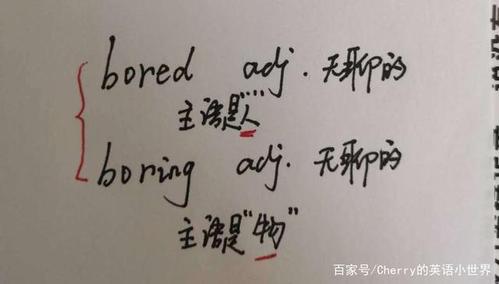 bored adj. 无聊的
主语是"人"
boring adj. 无聊的
主语是"物"
百家号/Cherry的英语小世界